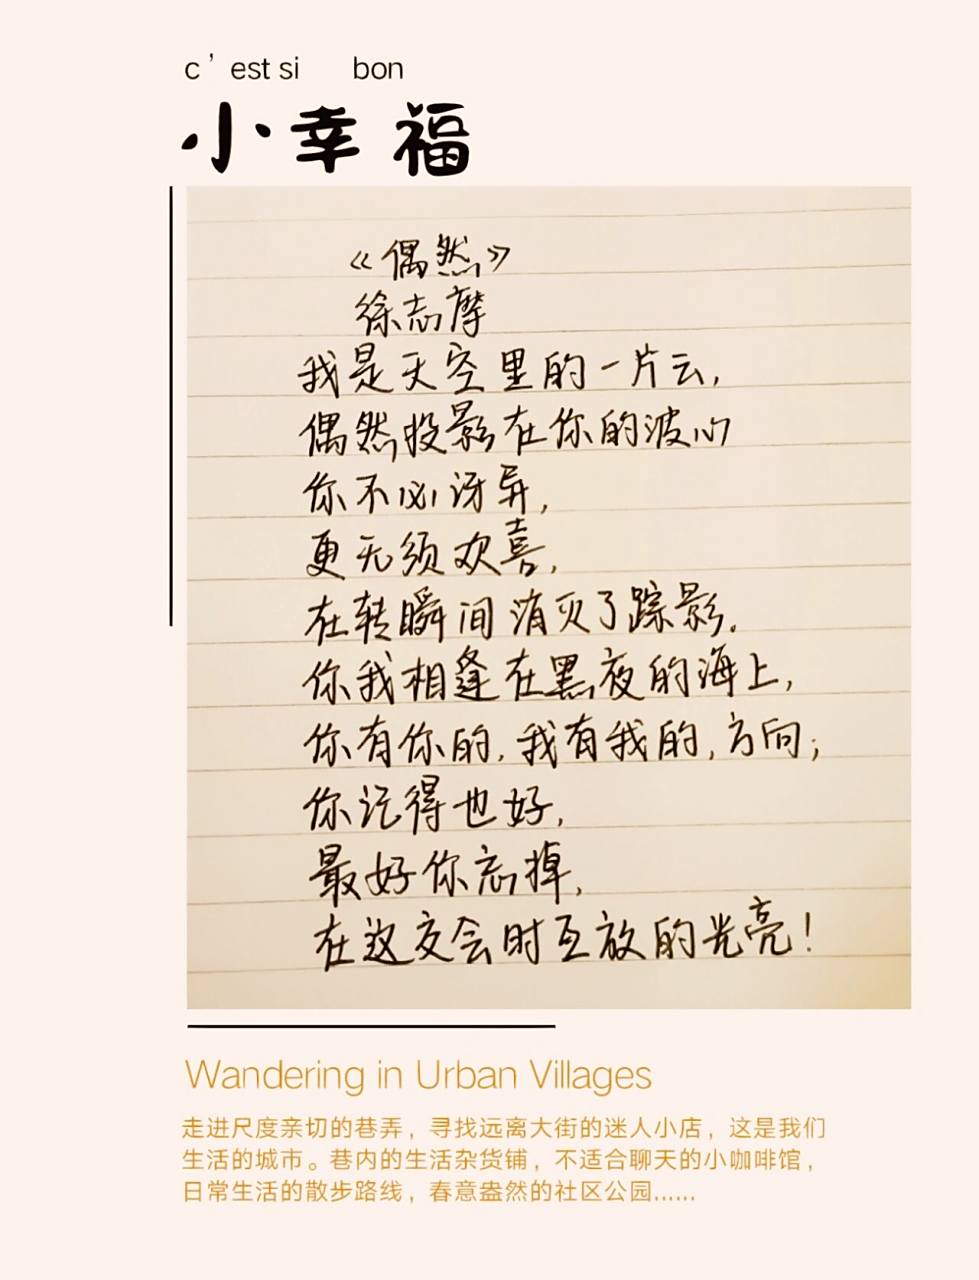 c'est si bon
小幸福
《偶然》
徐志摩
我是天空里的一片云,
偶然投影在你的波心
你不必讶异,
更无须欢喜,
在转瞬间消灭了踪影。
你我相逢在黑夜的海上,
你有你的,我有我的,方向;
你记得也好,
最好你忘掉,
在这交会时互放的光亮!
Wandering in Urban Villages
走进尺度亲切的巷弄，寻找远离大街的迷人小店，这是我们
生活的城市。巷内的生活杂货铺，不适合聊天的小咖啡馆，
日常生活的散步路线，春意盎然的社区公园……